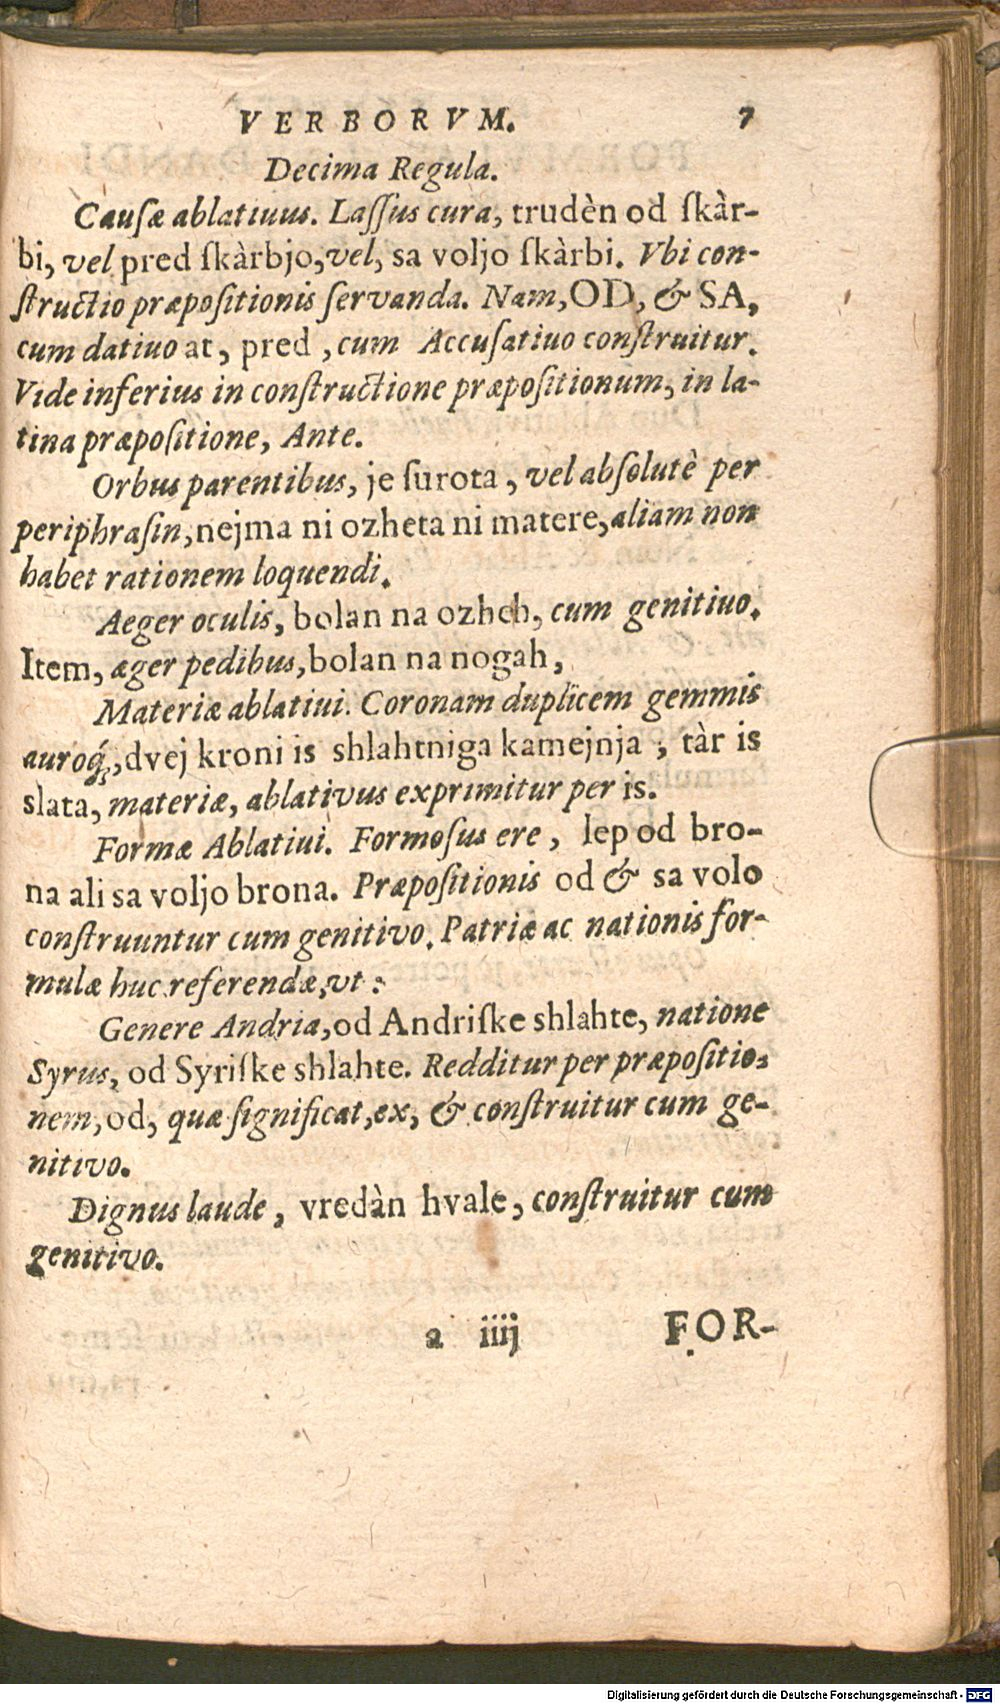 VERBORVM. 7
Decima Regula.
Causæ ablatiuus. Laſſus cura, trudèn od ſkàr-
bi, vel pred ſkàrbjo, vel, sa voljo ſkàrbi. Vbi con-
ſtructio præpoſitionis ſervanda. Nam, OD, & SA,
cum dativo at, pred, cum Accuſatiuo conſtruitur.
Vide inferius in conſtructione præpoſitionum, in la-
tina præpoſitione, Ante.
Orbus parentibus, je ſurota, vel abſolutè per
periphraſin, nejma ni ozheta ni matere, aliam non
habet rationem loquendi.
Aeger oculis, bolan na ozheh, cum genitiuo.
Item, æger pedibus, bolan na nogah,
Materiæ ablatiui. Coronam duplicem gemmis
auroq́;, dvej kroni is shlahtniga kamejnja, tàr is
slata, materiæ, ablativus exprimitur per is.
Formæ Ablatiui. Formoſus ere, lep od bro-
na ali sa voljo brona. Præpoſitionis od & sa volo
conſtruuntur cum genitivo. Patriæ ac nationis for-
mulæ huc referendæ, vt:
Genere Andria, od Andriſke shlahte, natione
Syrus, od Syriſke shlahte. Redditur per præpoſitio-
nem, od, quæ ſignificat, ex, & conſtruitur cum ge-
nitivo.
Dignus laude, vredàn hvale, conſtruitur cum
genitivo.
a iiij FOR-
Digitalisierung gefördert durch die Deutsche Forschungsgemeinschaft - DFG